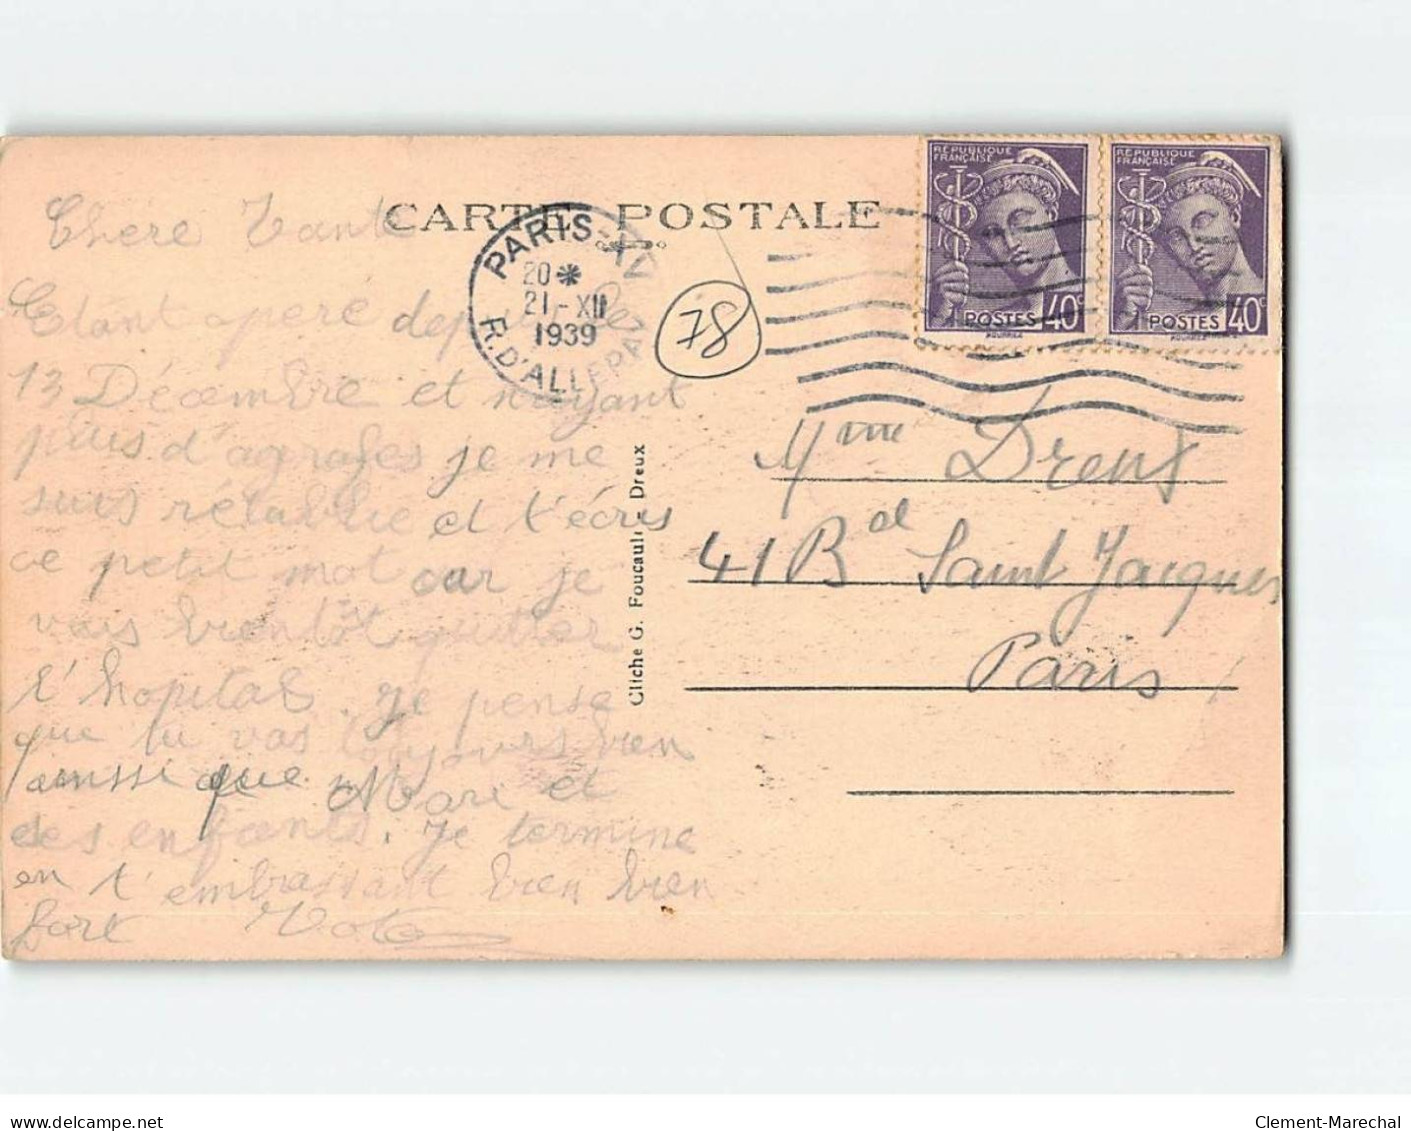 CARTE POSTALE
REPUBLIQUE
FRANÇAISE
POSTES 40c
REPUBLIQUE
FRANÇAISE
POSTES 40c
PARIS-XV
20 *
21-XII
1939
R. D'ALLERAY
78
Chère Tante
Etant opéré depuis le
13 Décembre et n'ayant
plus d'agrafes je me
suis rétablie et t'écris
ce petit mot car je
vais bientôt quitter
l'hopital. Je pense
que tu vas toujours bien
aussi que Mari et
des enfants. Je termine
en t'embrassant bien bien
fort
Cliche G. Foucault - Dreux
Mme
41 Bd Saint Jacques
Paris
delcampe.net
Clement-Marechal